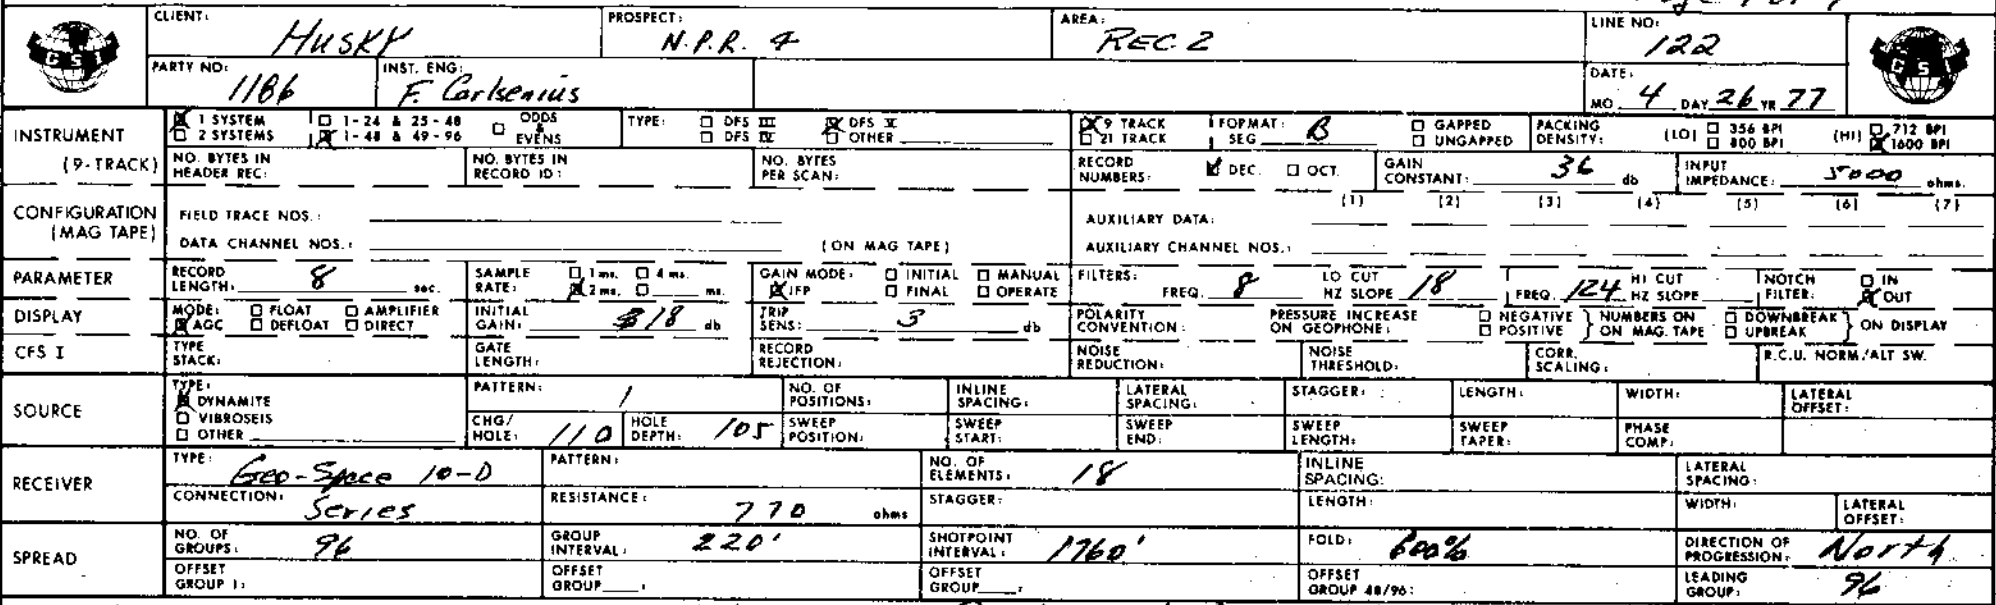 CLIENT: HUSKY PROSPECT: N.P.R. 4 AREA: REC 2 LINE NO: 122
GSI
PARTY NO: 1186 INST. ENG: F. Carlsenius DATE: MO 4 DAY 26 YR 77
GSI
INSTRUMENT (9-TRACK)
☒ 1 SYSTEM ☐ 1-24 & 25-48 ☐ ODDS & EVENS TYPE: ☐ DFS III ☒ DFS V ☒ 9 TRACK FORMAT: SEG B ☐ GAPPED PACKING DENSITY: (LO) ☐ 356 BPI (HI) ☐ 712 BPI
☐ 2 SYSTEMS ☒ 1-48 & 49-96 ☐ DFS IV ☐ OTHER ☐ 21 TRACK ☐ UNGAPPED ☐ 800 BPI ☒ 1600 BPI
NO. BYTES IN HEADER REC: NO. BYTES IN RECORD ID: NO. BYTES PER SCAN: RECORD NUMBERS: ☒ DEC. ☐ OCT. GAIN CONSTANT: 36 db INPUT IMPEDANCE: 5000 ohms.
CONFIGURATION (MAG TAPE)
FIELD TRACE NOS.: AUXILIARY DATA: (1) (2) (3) (4) (5) (6) (7)
DATA CHANNEL NOS.: (ON MAG TAPE) AUXILIARY CHANNEL NOS.:
PARAMETER RECORD LENGTH: 8 sec. SAMPLE RATE: ☐ 1 ms. ☐ 4 ms. ☒ 2 ms. ☐ ms. GAIN MODE: ☐ INITIAL ☐ MANUAL ☒ IFP ☐ FINAL ☐ OPERATE FILTERS: FREQ. 8 LO CUT HZ SLOPE 18 FREQ. 124 HI CUT HZ SLOPE NOTCH FILTER: ☐ IN ☒ OUT
DISPLAY MODE: ☐ FLOAT ☐ AMPLIFIER ☒ AGC ☐ DEFLOAT ☐ DIRECT INITIAL GAIN: 18 db TRIP SENS: 3 db POLARITY CONVENTION: PRESSURE INCREASE ON GEOPHONE: ☐ NEGATIVE ☐ POSITIVE } NUMBERS ON MAG. TAPE ☐ DOWNBREAK ☐ UPBREAK } ON DISPLAY
CFS I TYPE STACK: GATE LENGTH: RECORD REJECTION: NOISE REDUCTION: NOISE THRESHOLD: CORR. SCALING: R.C.U. NORM./ALT SW.
SOURCE TYPE: ☒ DYNAMITE ☐ VIBROSEIS ☐ OTHER PATTERN: 1 NO. OF POSITIONS: INLINE SPACING: LATERAL SPACING: STAGGER: LENGTH: WIDTH: LATERAL OFFSET:
CHG/HOLE: 110 HOLE DEPTH: 105 SWEEP POSITION: SWEEP START: SWEEP END: SWEEP LENGTH: SWEEP TAPER: PHASE COMP:
RECEIVER TYPE: Geo-Space 10-D PATTERN: NO. OF ELEMENTS: 18 INLINE SPACING: LATERAL SPACING:
CONNECTION: Series RESISTANCE: 770 ohms STAGGER: LENGTH: WIDTH: LATERAL OFFSET:
SPREAD NO. OF GROUPS: 96 GROUP INTERVAL: 220' SHOTPOINT INTERVAL: 1760' FOLD: 600% DIRECTION OF PROGRESSION: North
OFFSET GROUP 1: OFFSET GROUP : OFFSET GROUP : OFFSET GROUP 48/96: LEADING GROUP: 96